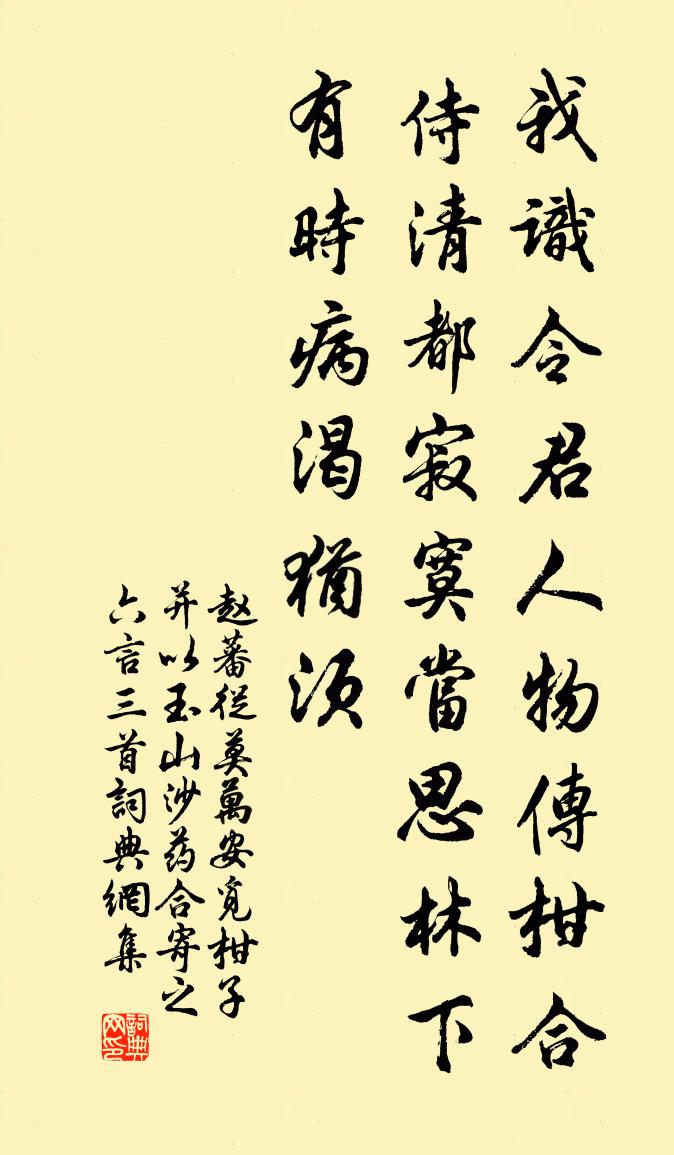 我識令君人物傳柑合
侍清都寂寞當思林下
有時病渴猶須
赵蕃從莫萬安覓柑子
并以玉山沙药合寄之
六言三首詞典網集
詞典
网印